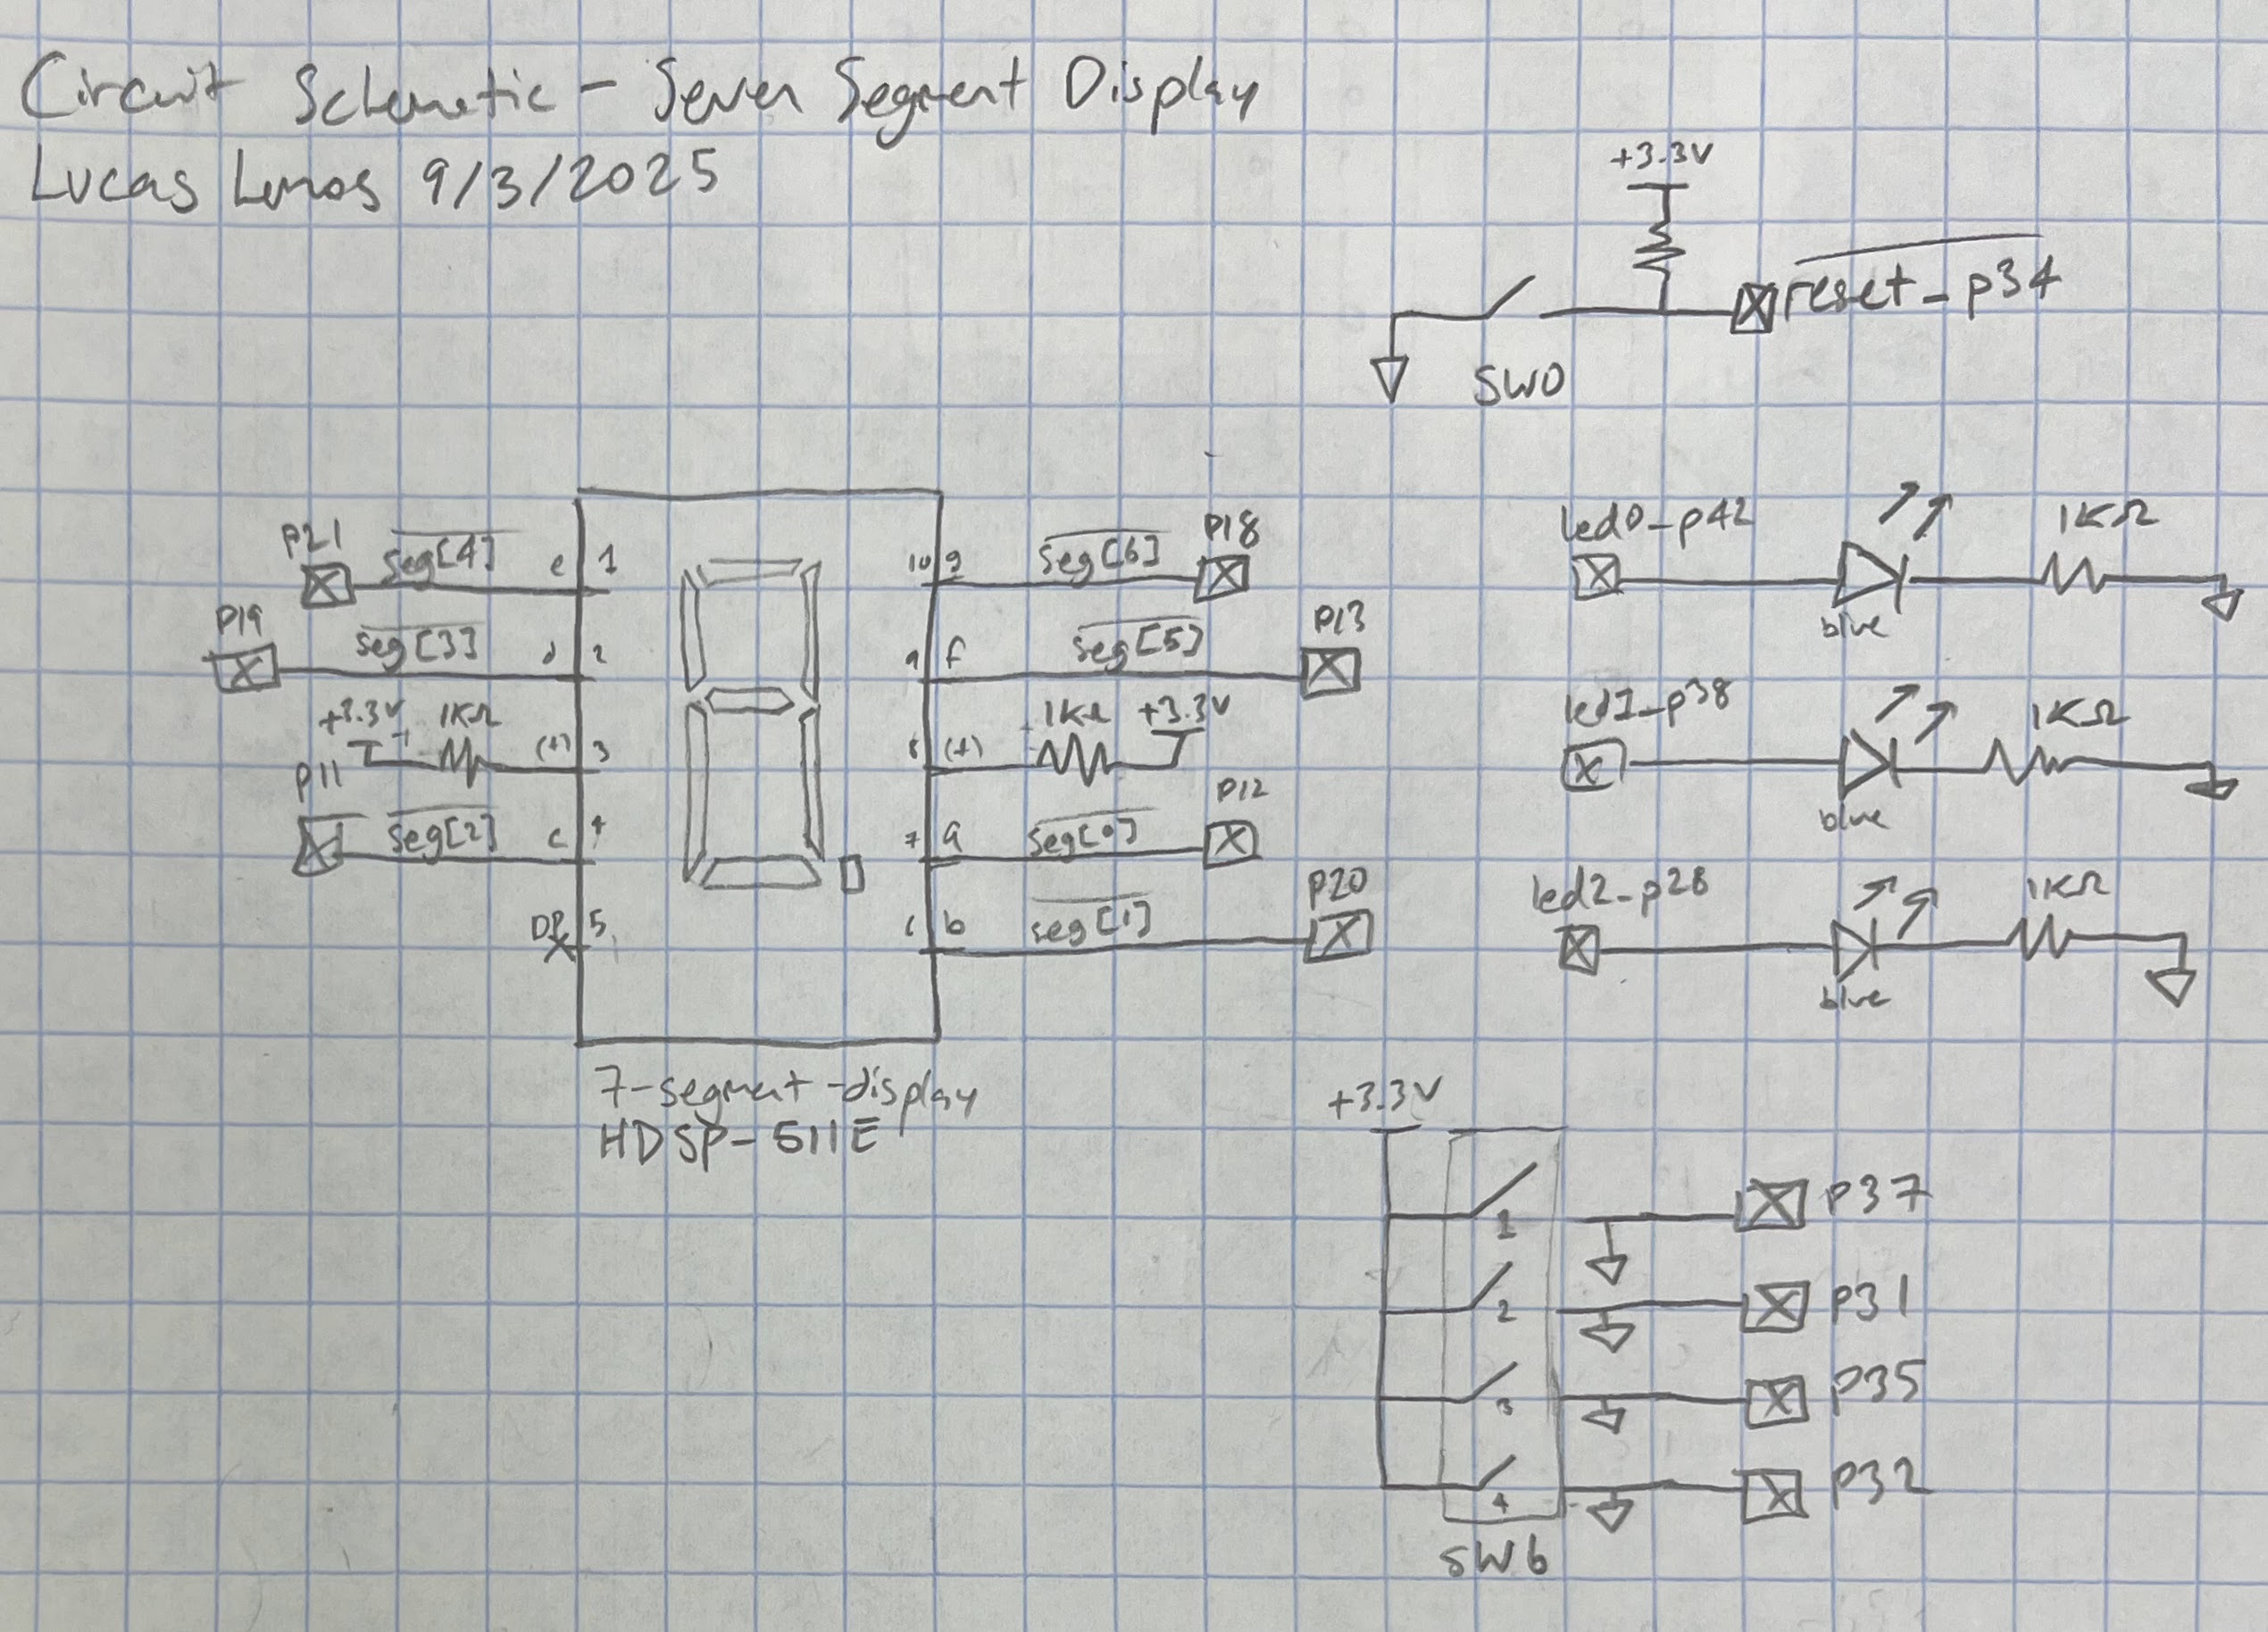 Circuit Schematic - Seven Segment Display
Lucas Lemos 9/3/2025
+3.3V
reset_p34
SW0
p21 seg[4] e 1
10 g seg[6] p18
p19 seg[3] d 2
9 f seg[5] p13
+3.3V 1KΩ (+) 3
8 (+) 1KΩ +3.3V
p11 seg[2] c 4
7 a seg[0] p12
DP 5
6 b seg[1] p20
7-segment-display
HDSP-511E
led0_p42 1KΩ
blue
led1_p38 1KΩ
blue
led2_p28 1KΩ
blue
+3.3V
1 p37
2 p31
3 p35
4 p32
SW6